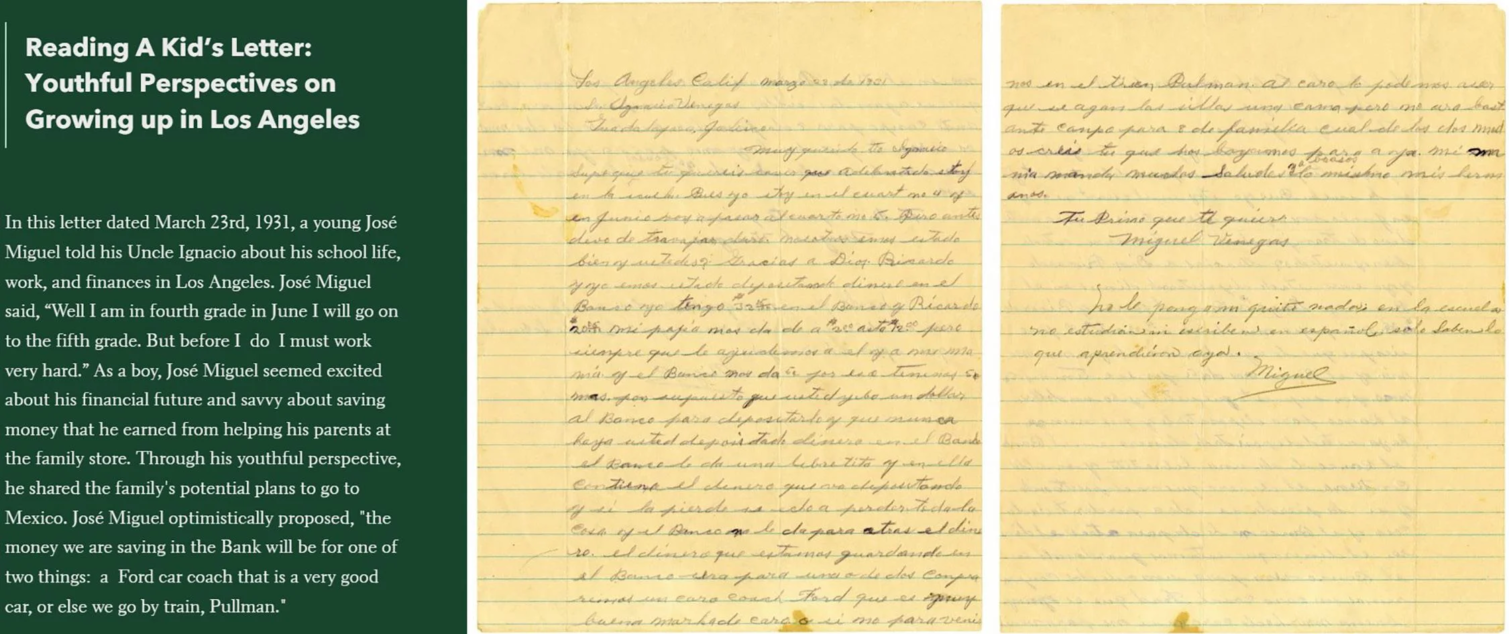 Reading A Kid's Letter:
Youthful Perspectives on
Growing up in Los Angeles
In this letter dated March 23rd, 1931, a young José
Miguel told his Uncle Ignacio about his school life,
work, and finances in Los Angeles. José Miguel
said, "Well I am in fourth grade in June I will go on
to the fifth grade. But before I do I must work
very hard." As a boy, José Miguel seemed excited
about his financial future and savvy about saving
money that he earned from helping his parents at
the family store. Through his youthful perspective,
he shared the family's potential plans to go to
Mexico. José Miguel optimistically proposed, "the
money we are saving in the Bank will be for one of
two things: a Ford car coach that is a very good
car, or else we go by train, Pullman."
Los Angeles Calif marzo 23 de 1931
Sr. Ignacio Venegas
Guadalajara, Jalisco
Muy querido tio Ignacio
Supe que tu que adelantado estoy
en la Pues yo estoy en el cuart no 4 y
en Junio boy a pasar al cuarto no 5. Pero antes
devo de trabajar duro nosotros emos estado
bien y ustedes? Gracias a Dios Ricardo
y yo emos estado depositando dinero en el
Banco yo tengo en el Banco y Ricardo
mi papá nos da de a pero
siempre que le ayudemos a el y a mi ma
má y el Banco nos da por eso tenemos
mas. por supuesto que usted yebo un dollar
al Banco para depositarlo y que nunca
haya usted depositado dinero en el Banco
el Banco le da una libretita y en ella
contiene el dinero que va depositando
y si la pierde se echo a perder toda la
cosa y el Banco no le da para atras el dine
ro. el dinero que estamos guardando en
el Banco sera para una o de dos Conpra
remos un caro coach Ford que es muy
buena marka de caro o si no para venir
nos en el tren Pulman al caro le podemos aser
que se agan las sillas una cama pero no ara bast
ante canpo para 8 de familia cual de los dos mod
os creis tu que nos bayamos para aya. mi ma
má manda muchos saludes lo mismo mis herm
anos.
abrasos
Tu Primo que te quiere
Miguel Venegas
no le pongo mi nada en la escuela
no estudian ni escriben en español, solo saben lo
que aprendieron aya.
Miguel